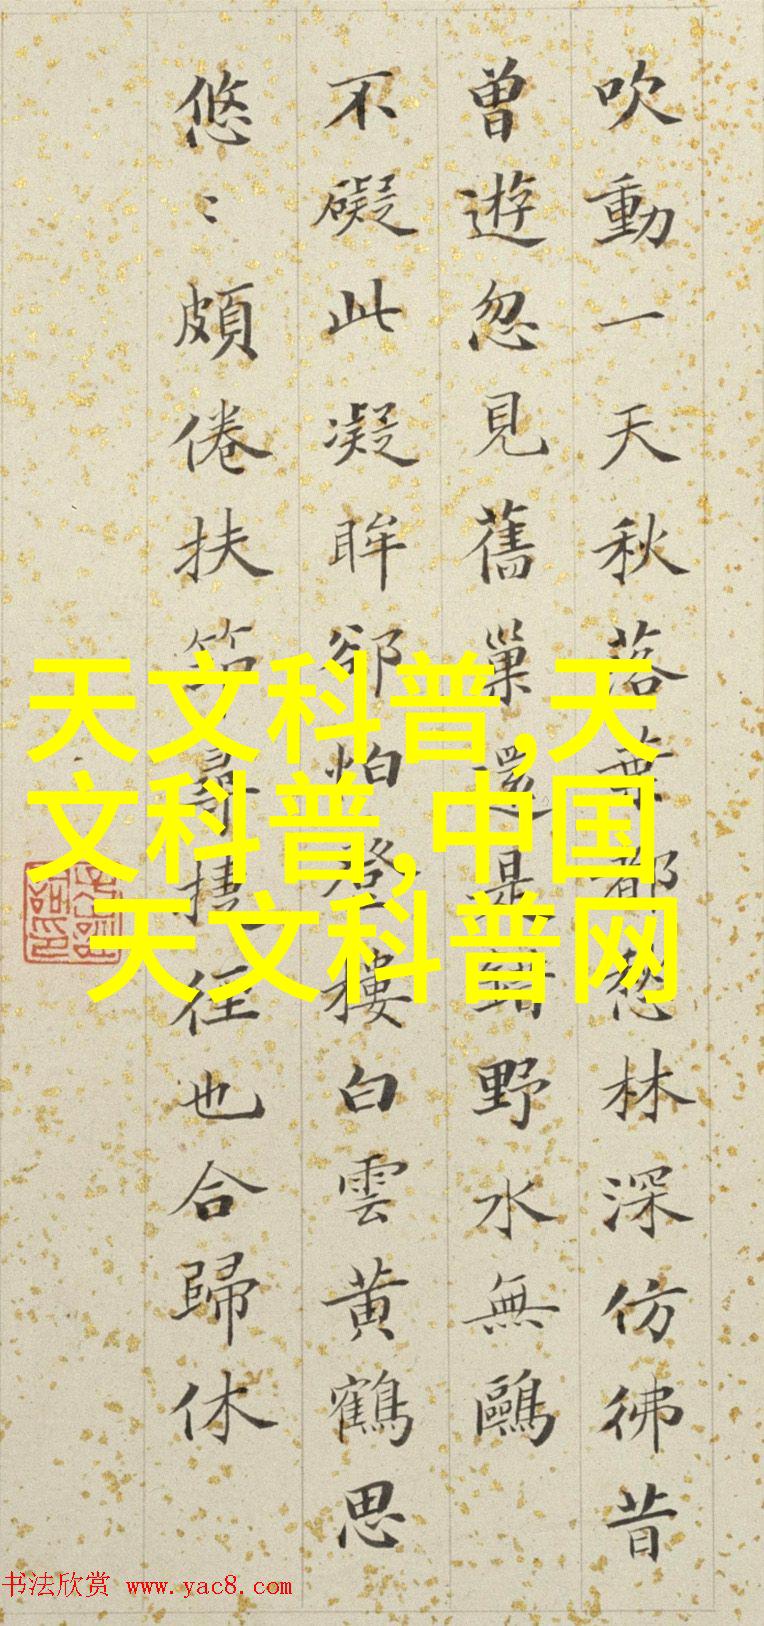 吹動一天秋落葉都愁林深仿彿昔
曾遊忽見舊巢還是錯野水無鷗
不礙此凝眸卻怕登樓白雲黃鶴思
悠〻頗倦扶筇尋捷徑也合歸休
天文科普,天
文科普,中国
天文科普网
书法欣赏 www.yac8.com